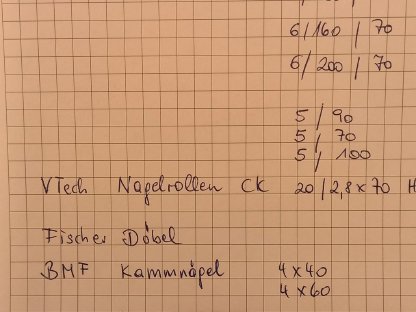 6/160 / 70
6/200 / 70
5 / 90
5 / 70
5 / 100
VTech Nagelrollen CK 20/2,8x70 H
Fischer Döbel
BMF Kammnägel 4x40
4x60